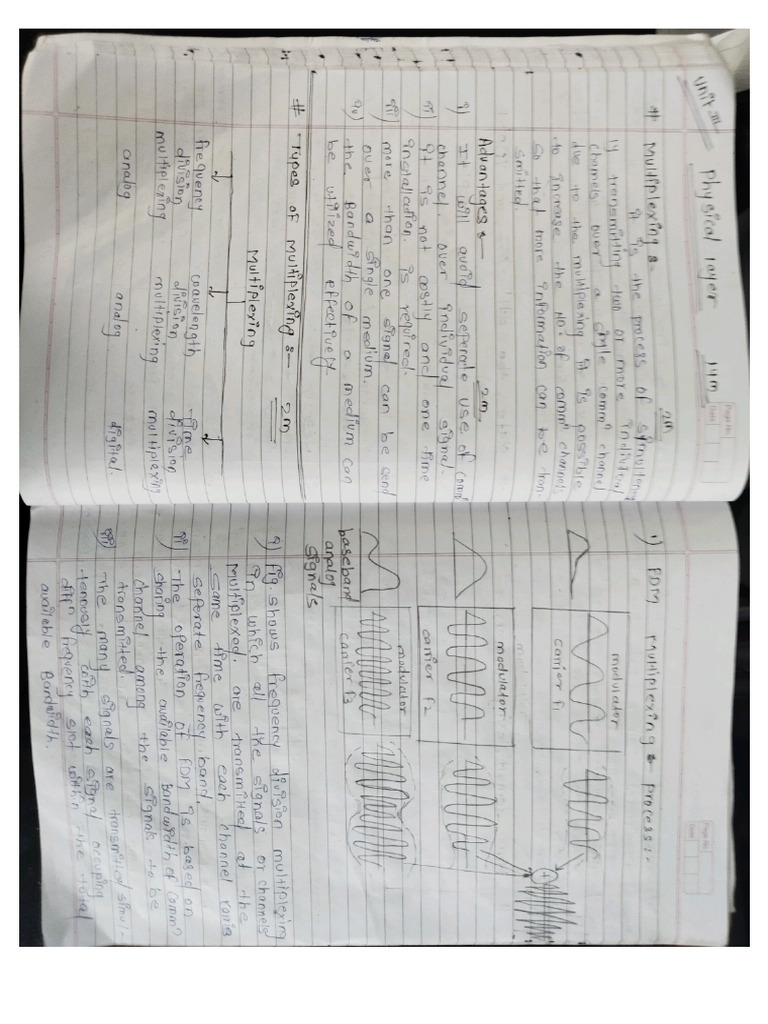 Unit III
Physical layer 14M
Page No:
Date
# Multiplexing :- 2M
It is the process of simultaneo
ly transmitting two or more individual
channels over a single commn channel
due to the multiplexing it is possible
to increase the No. of commn channels
so that more information can be tran-
smitted
Advantages :- 2M
i) It will avoid seperate use of comm
channel. over individual signal.
ii) It is not costly and one time
installation. is required.
iii) more than one signal can be send
over a single medium.
iv) the Bandwidth of a medium can
be utilized effectively.
# Types of multiplexing :- 2M
Multiplexing
frequency
division
multiplexing
analog
wavelength
division
multiplexing
analog
Time
division
multiplexing
digital.
Page No:
Date
1) FDM multiplexing :- process :-
modulator
carrier f1
modulator
carrier f2
modulator
carrier f3
baseband
analog
signals
i) fig. shows frequency division multiplexing
in which all the signals or channels
Multiplexed. are transmitted at the
same time with each channel
seperate frequency band.
ii) the operation of FDM is based on
sharing the available Bandwidth of commn
channel among the signals to be
transmitted.
iii) The many signals are transmitted simul-
tenously with each signal occuping
diffn frequency slot within the total
available Bandwidth.